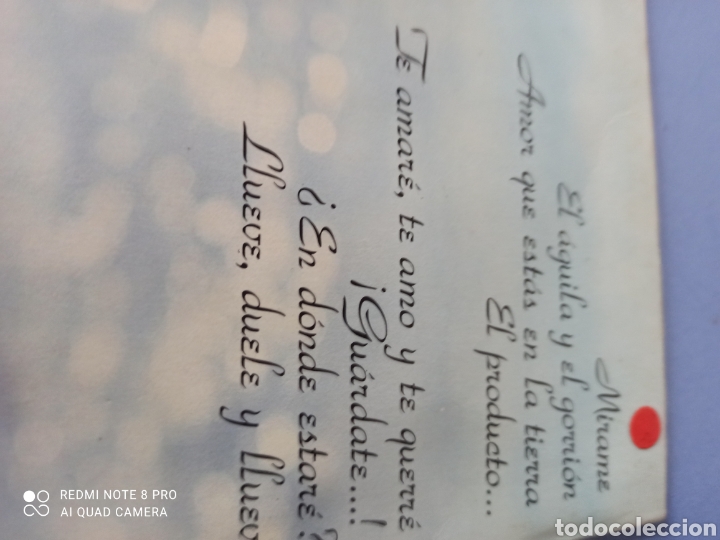 Mírame
El águila y el gorrión
Amor que estás en la tierra
El producto...
Te amaré, te amo y te querré
¡Guárdate...!
¿En dónde estaré?
Llueve, duele y lluev
REDMI NOTE 8 PRO
AI QUAD CAMERA
todocoleccion